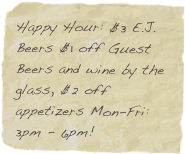 Happy Hour: $3 E.J.
Beers $1 off Guest
Beers and wine by the
glass, $2 off
appetizers Mon-Fri:
3pm - 6pm!